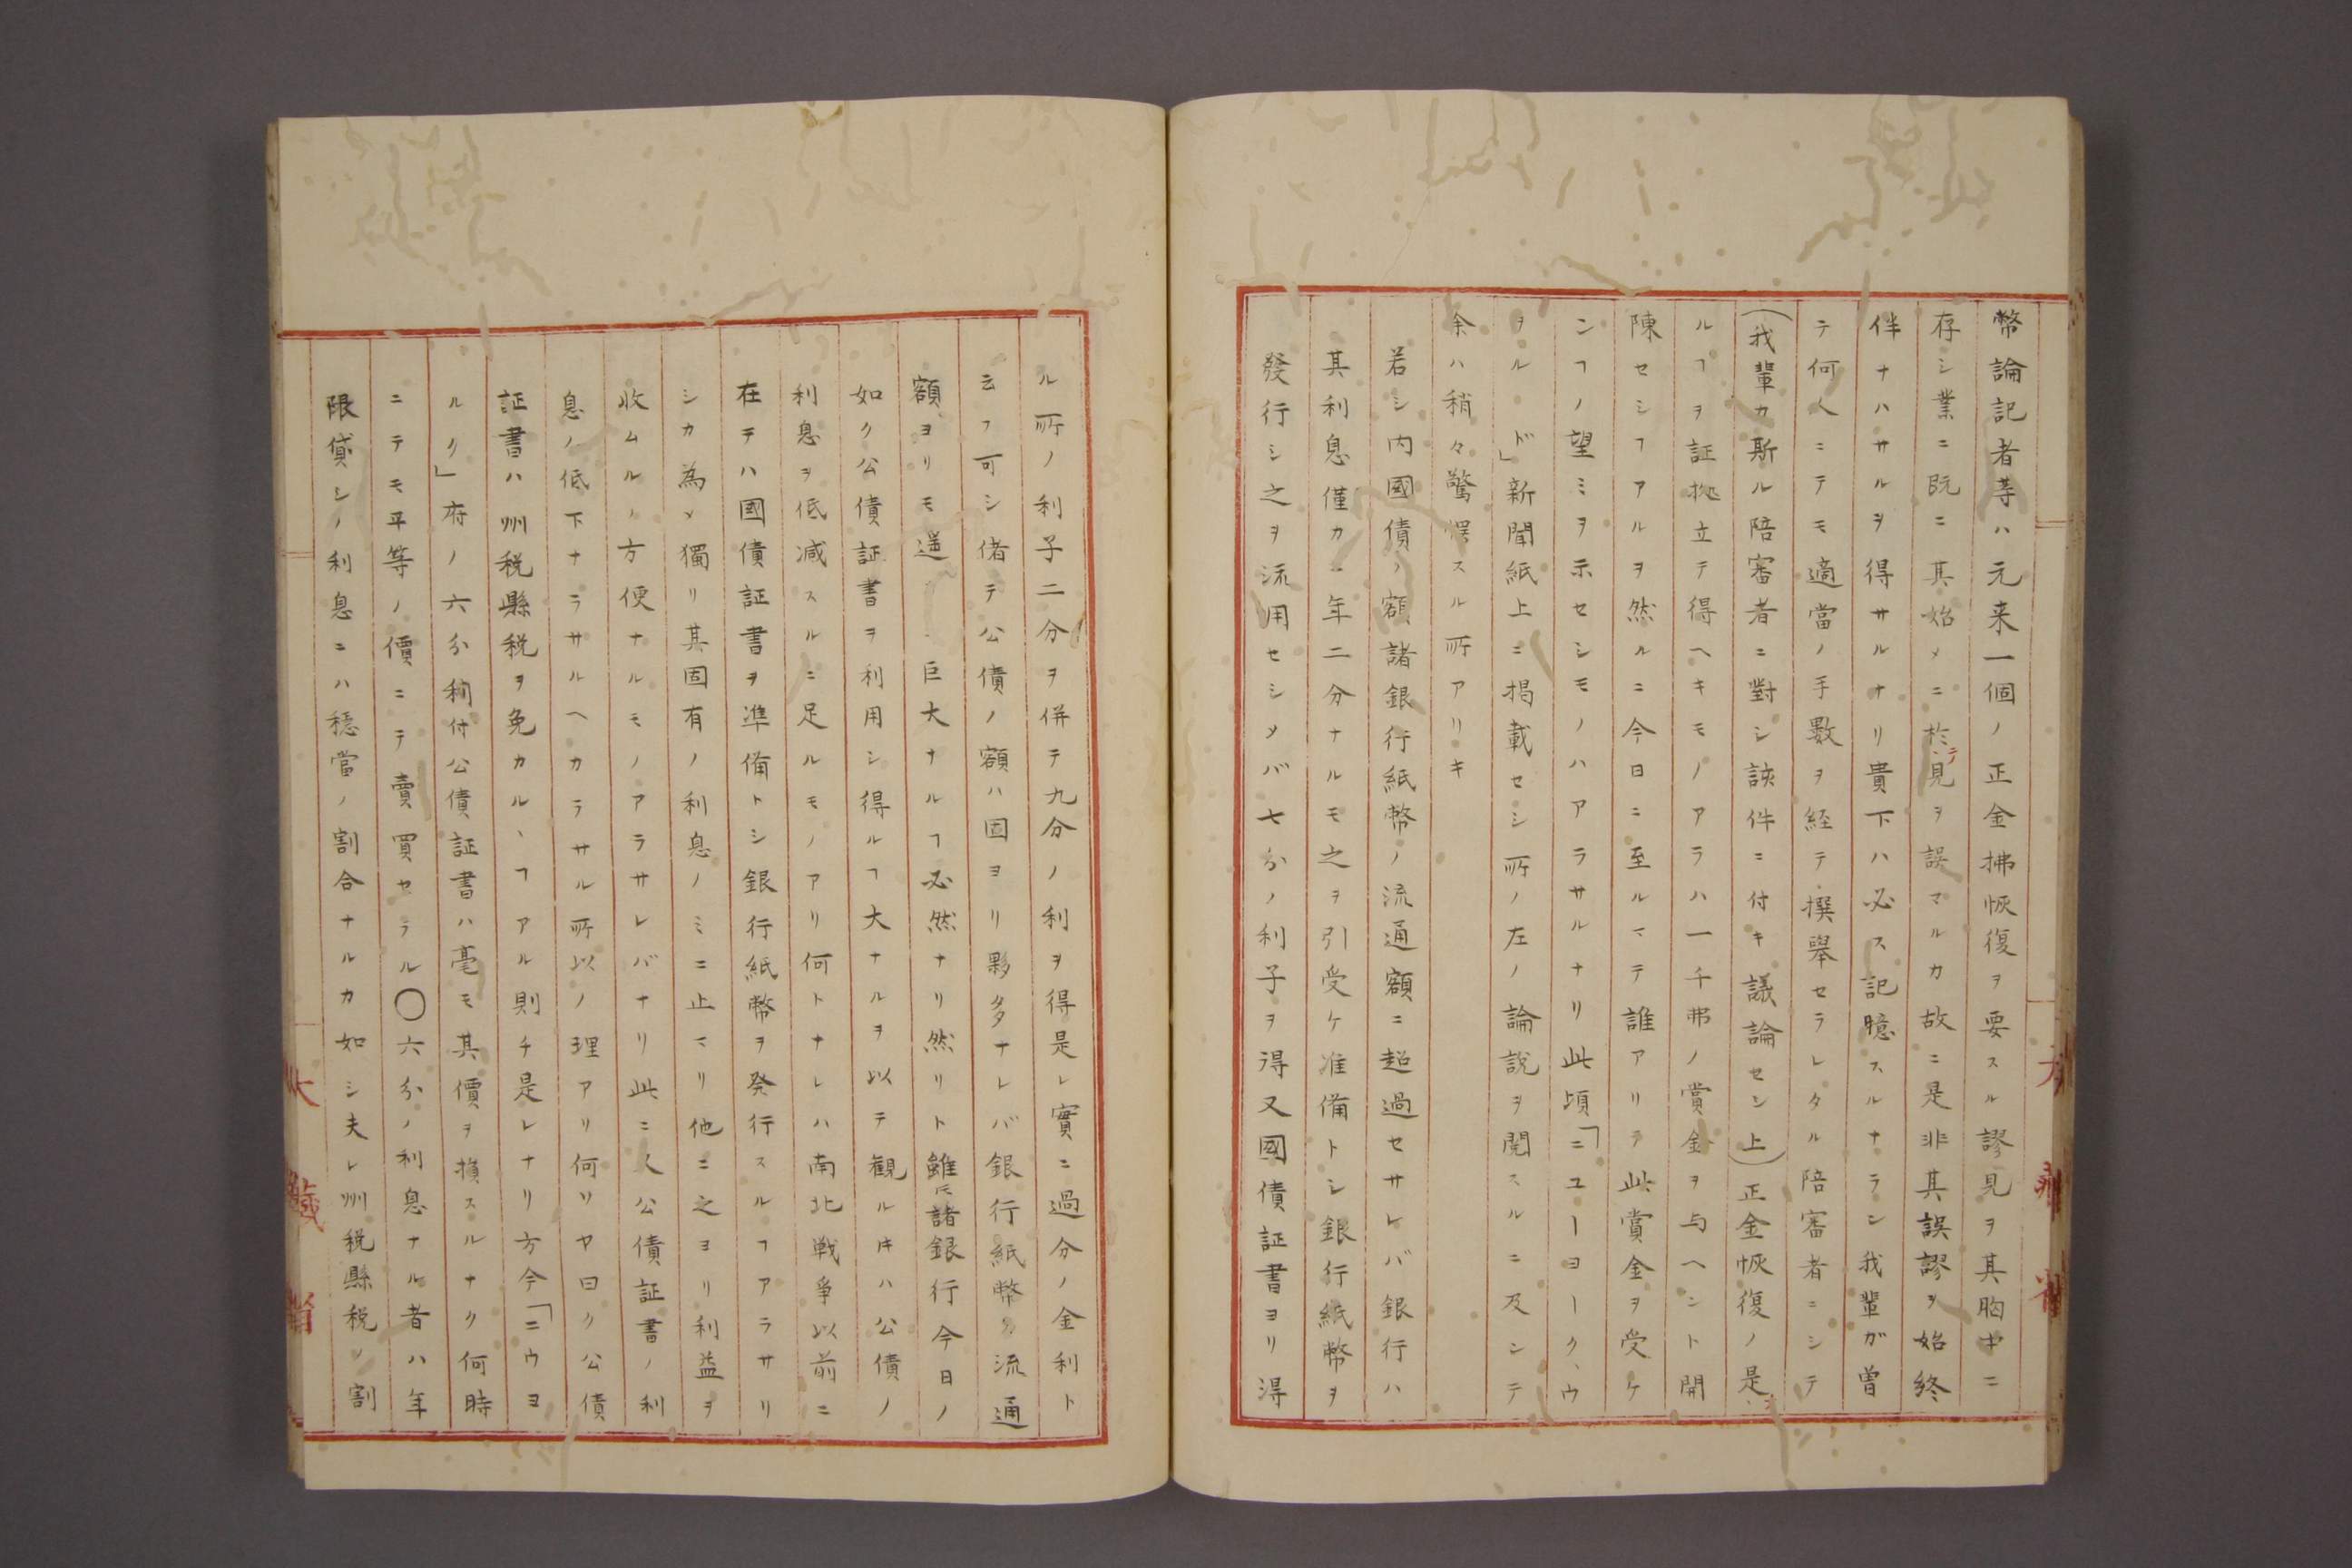 幣論記者等ハ元来一個ノ正金拂恢復ヲ要スル謬見ヲ其胸中ニ
存シ業ニ既ニ其始メニ於テ見ヲ誤マルカ故ニ是非其誤謬ヲ始終
伴ナハサルヲ得サルナリ貴下ハ必ス記臆スルナラン我輩ガ曽
テ何人ニテモ適當ノ手數ヲ経テ撰舉セラレタル陪審者ニシテ
(我輩カ斯ル陪審者ニ對シ該件ニ付キ議論セシ上)正金恢復ノ是ヲ
ルヿヲ証拠立テ得ヘキモノアラハ一千弗ノ賞金ヲ与ヘント開
陳セシヿアルヲ然ルニ今日ニ至ルマテ誰アリテ此賞金ヲ受ケ
ンヿノ望ミヲ示セシモノハアラサルナリ此頃「ニユーヨーク、ウ
ヲルド」新聞紙上ニ掲載セシ所ノ左ノ論説ヲ閲スルニ及ンテ
余ハ稍々驚愕スル所アリキ
若シ内國債ノ額諸銀行紙幣ノ流通額ニ超過セサレバ銀行ハ
其利息僅カニ年二分ナルモ之ヲ引受ケ准備トシ銀行紙幣ヲ
發行シ之ヲ流用セシメバ七分ノ利子ヲ得又國債証書ヨリ得
ル所ノ利子二分ヲ併テ九分ノ利ヲ得是レ實ニ過分ノ金利ト
云フ可シ偖テ公債ノ額ハ固ヨリ夥多ナレバ銀行紙幣ノ流通
額ヨリモ遥ニ巨大ナルヿ必然ナリ然リト雖𪜈諸銀行今日ノ
如ク公債証書ヲ利用シ得ルヿ大ナルヲ以テ観ル𪜈ハ公債ノ
利息ヲ低減スルニ足ルモノアリ何トナレハ南北戦争以前ニ
在テハ國債証書ヲ準備トシ銀行紙幣ヲ発行スルヿアラサリ
シカ為メ獨リ其固有ノ利息ノミニ止マリ他ニ之ヨリ利益ヲ
收ムルノ方便ナルモノアラサレバナリ此ニ人公債証書ノ利
息ノ低下ナラサルヘカラサル所以ノ理アリ何ソヤ曰ク公債
証書ハ州税縣税ヲ免カルヽヿアル則チ是レナリ方今「ニウヨ
ルク」府ノ六分利付公債証書ハ毫モ其價ヲ損スルナク何時
ニテモ平等ノ價ニテ賣買セラル〇六分ノ利息ナル者ハ年
限貸シノ利息ニハ穏當ノ割合ナルカ如シ夫レ州税縣税ノ割
大藏省